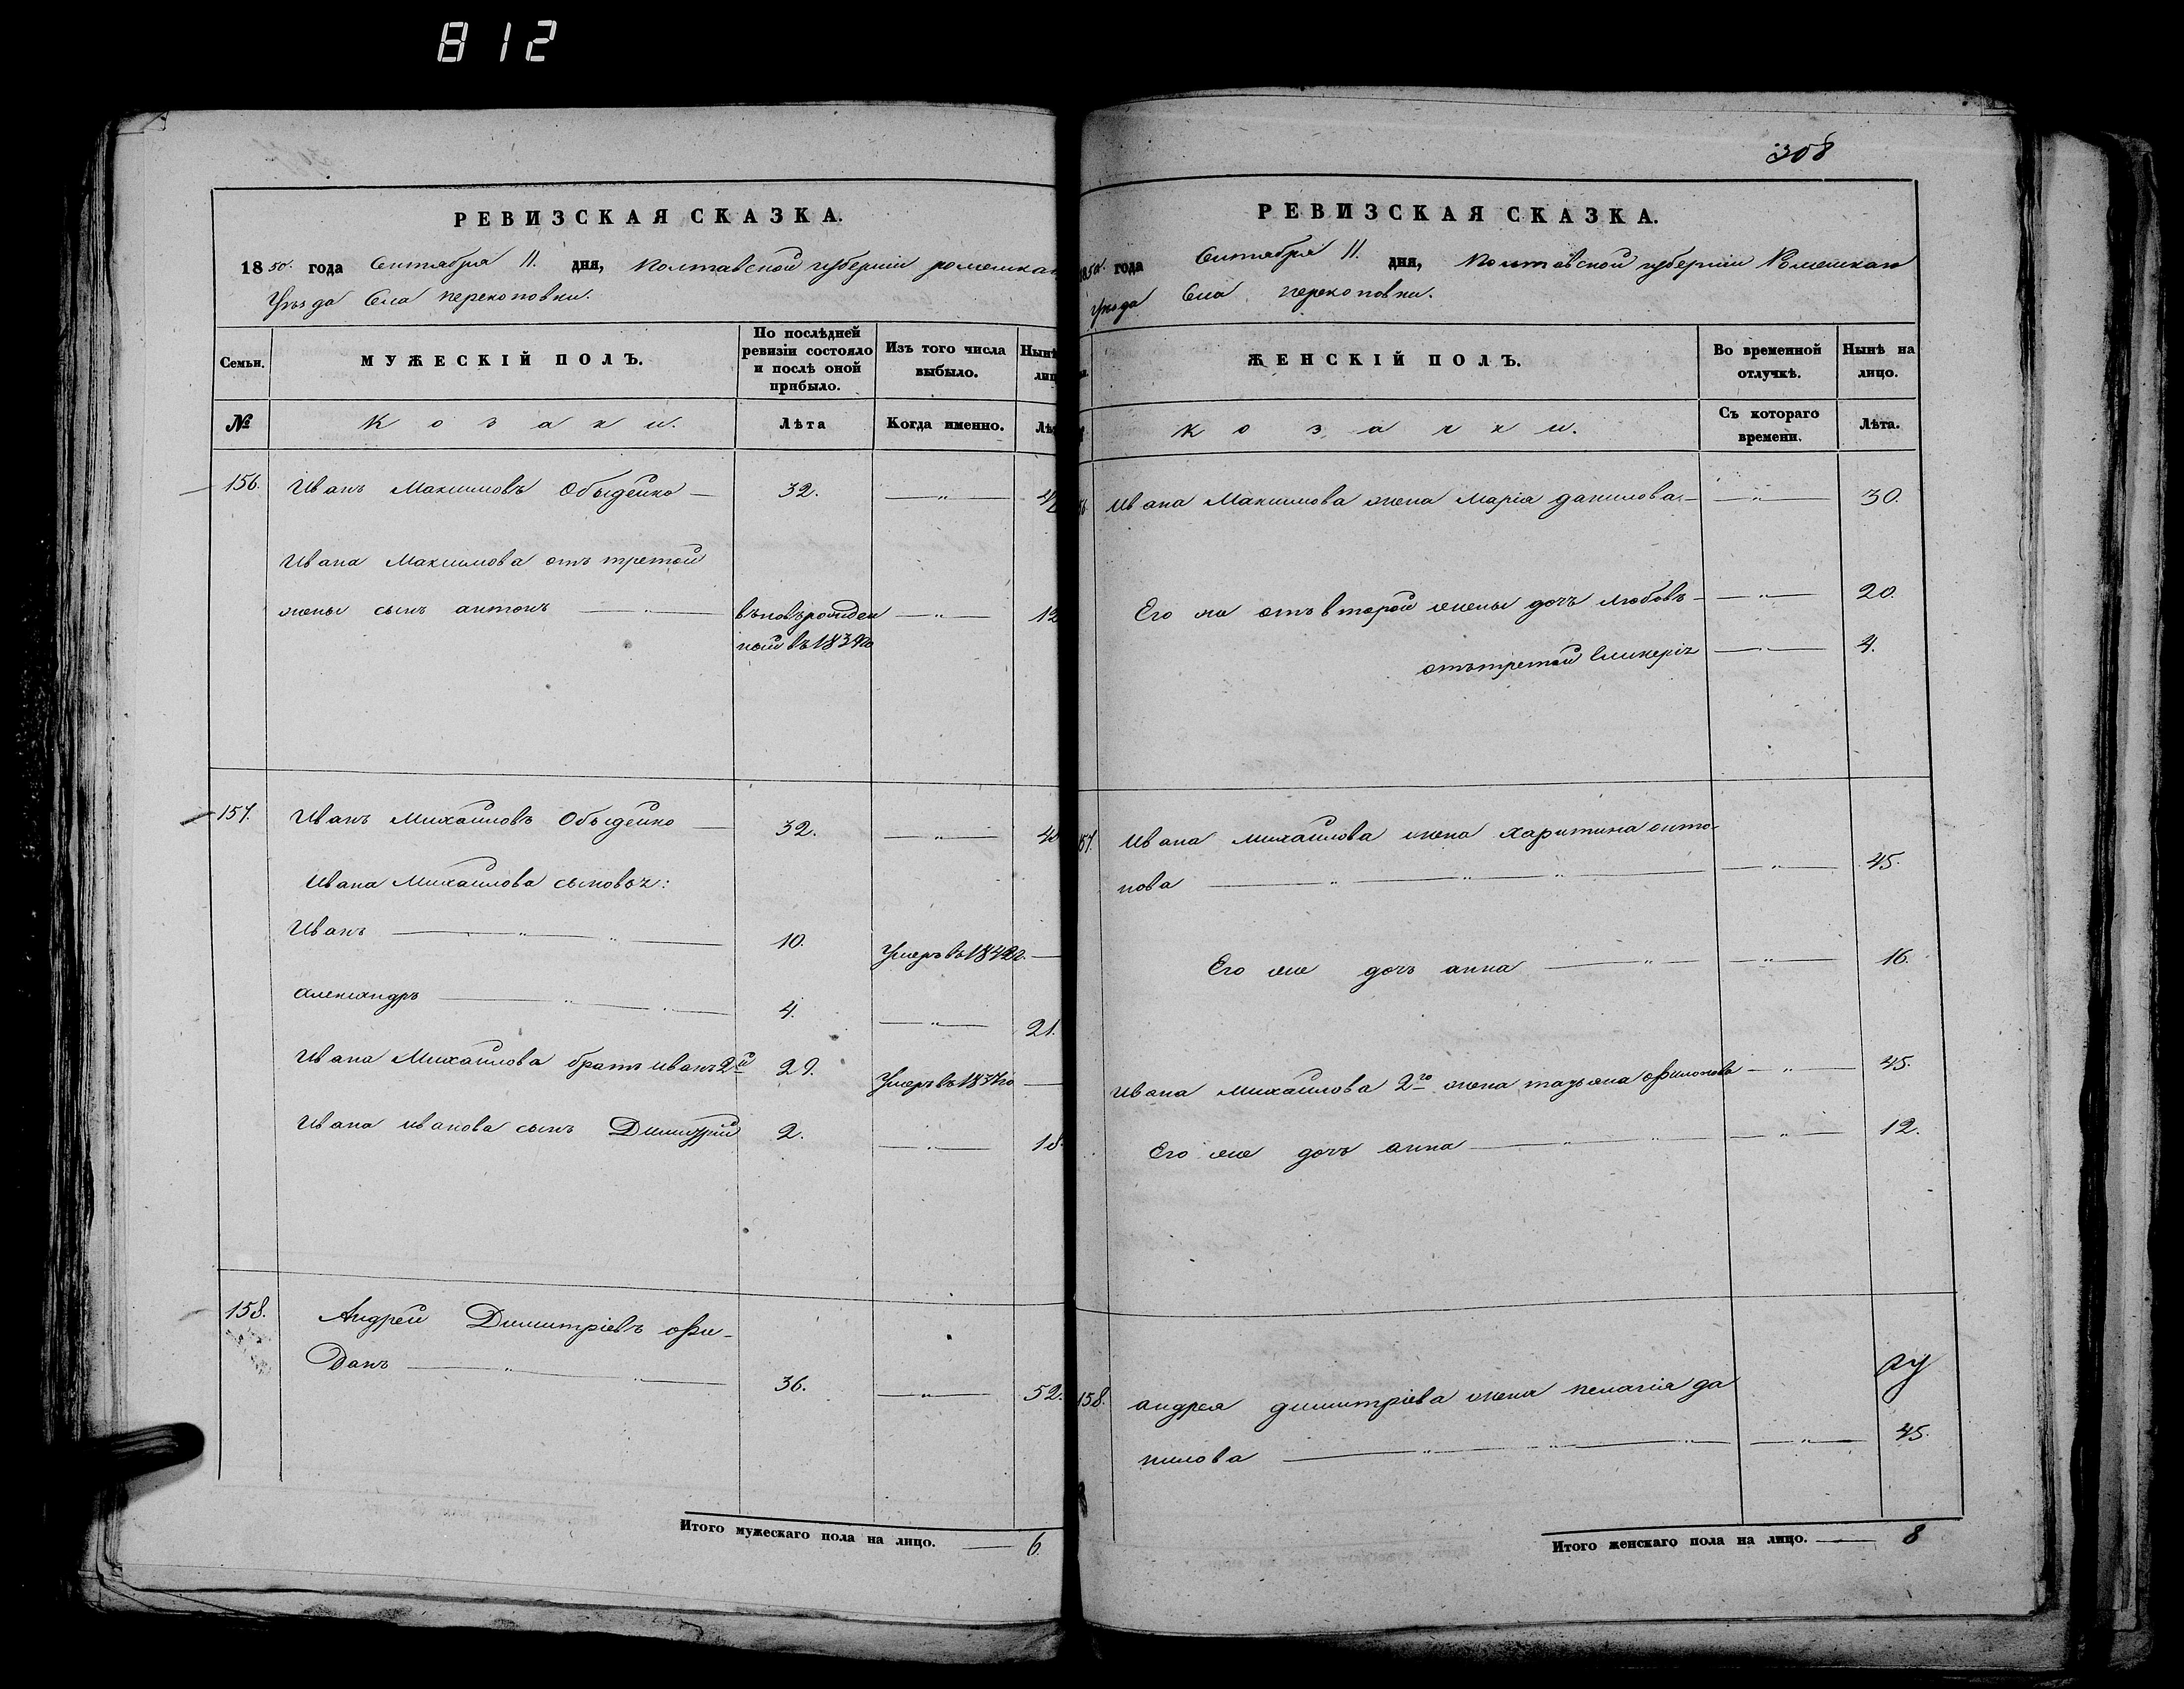 812
РЕВИЗСКАЯ СКАЗКА.
1850. года Сентября 11. дня, Полтавской губерніи роменскаго
Уѣзда Села перекоповки.
Семьи.
МУЖЕСКІЙ ПОЛЪ.
По послѣдней ревизіи состояло и послѣ оной прибыло.
Изъ того числа выбыло.
Нынѣ
№
Козаки.
Лѣта
Когда именно.
156. Иванъ Максимовъ Обыдейко 32.
Ивана Максимова отъ третой
жены сынъ антонъ въновърожден 12
ной въ 1839го
157. Иванъ Михайловъ Обыдейко 32.
Ивана Михайлова сыновья:
Иванъ 10. Умеръ въ 1842го.
Александръ 4. 21.
Ивана Михайлова братъ иванъ 2й 29. Умеръ въ 1837го
Ивана иванова сынъ Димитрій 2. 18
158. Андрей Димитріевъ Фи-
Данъ 36. 52.
Итого мужескаго пола на лицо. 6.
308
РЕВИЗСКАЯ СКАЗКА.
1850. года Сентября 11. дня, Полтавской губерніи Роменскаго
Уѣзда Села перекоповки.
ЖЕНСКІЙ ПОЛЪ.
Во временной отлучкѣ.
Нынѣ на лицо.
Козачки.
Съ котораго времени.
Лѣта.
Ивана Максимова жена Марія данилова 30.
Его же отъ второй жены дочь любовь 20.
отъ третой 4.
157. Ивана михайлова жена харитина анто-
нова 45.
Его же дочь анна 16.
Ивана михайлова 2го жена татьяна филонова 45.
Его же дочь анна 12.
158. андрея димитріева жена пелагія да
нилова 45.
Итого женскаго пола на лицо. 8